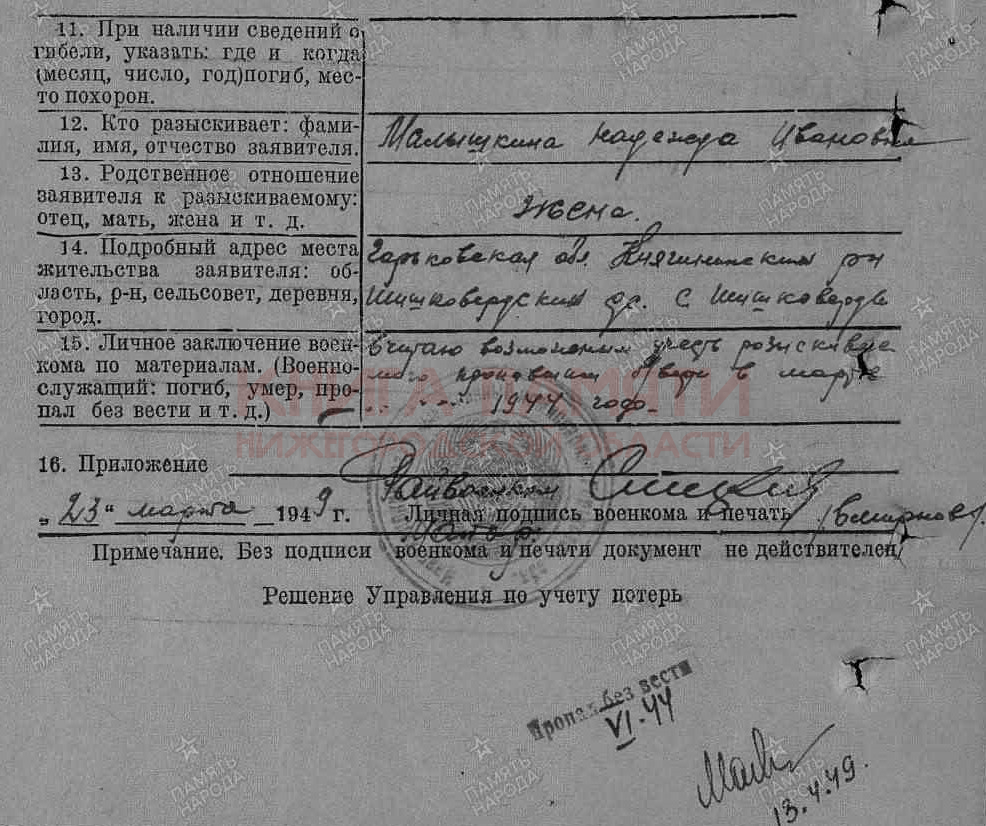 11. При наличии сведений о
гибели, указать: где и когда
(месяц, число, год)погиб, мес-
то похорон.
12. Кто разыскивает: фами-
лия, имя, отчество заявителя.
Малышкина Надежда Ивановна
13. Родственное отношение
заявителя к разыскиваемому:
отец, мать, жена и т. д.
жена.
14. Подробный адрес места
жительства заявителя: об-
ласть, р-н, сельсовет, деревня,
город.
Горьковская обл. Княгининский рн
с. Шишковердь
15. Личное заключение воен-
кома по материалам. (Военно-
служащий: погиб, умер, про-
пал без вести и т. д.)
Считаю возможным учесть
в марте
1944 года
КНИГА ПАМЯТИ
НИЖЕГОРОДСКОЙ ОБЛАСТИ
16. Приложение
Райвоенком
„23“ марта 1949 г. Личная подпись военкома и печать (Смирнов).
Майор
Примечание. Без подписи военкома и печати документ не действителен
Решение Управления по учету потерь
Пропал без вести
VI.44
13.4.49.
ПАМЯТЬ
НАРОДА